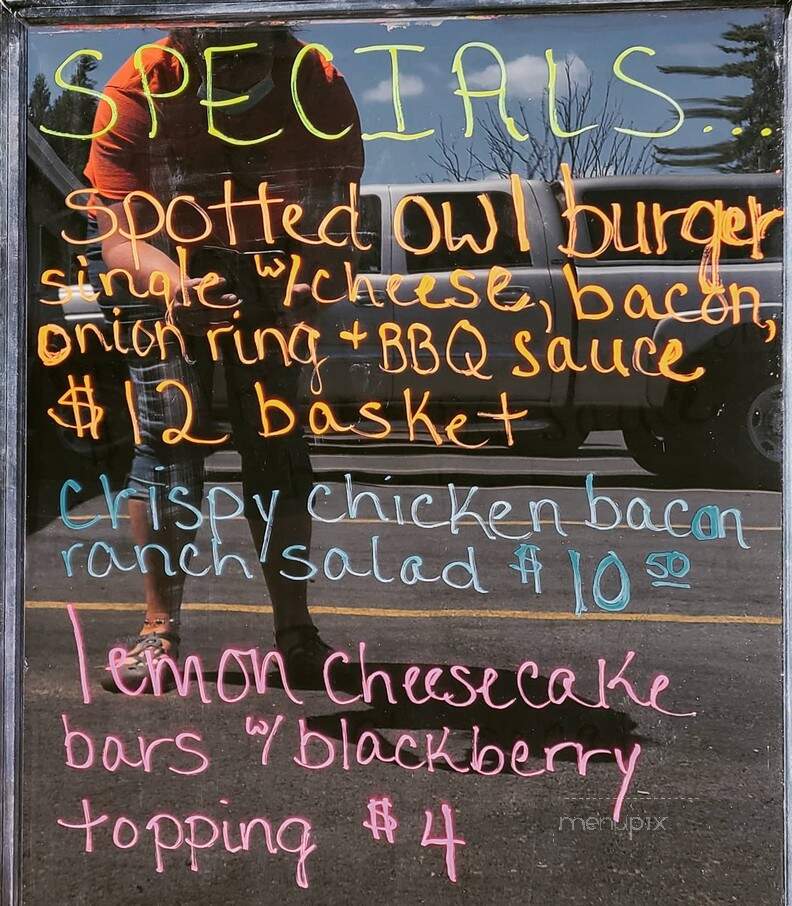 SPECIALS...
Spotted owl burger
single w/cheese, bacon,
onion ring + BBQ sauce
$12 basket
crispy chicken bacon
ranch salad $10 50
lemon cheesecake
bars w/blackberry
topping $4
menupix